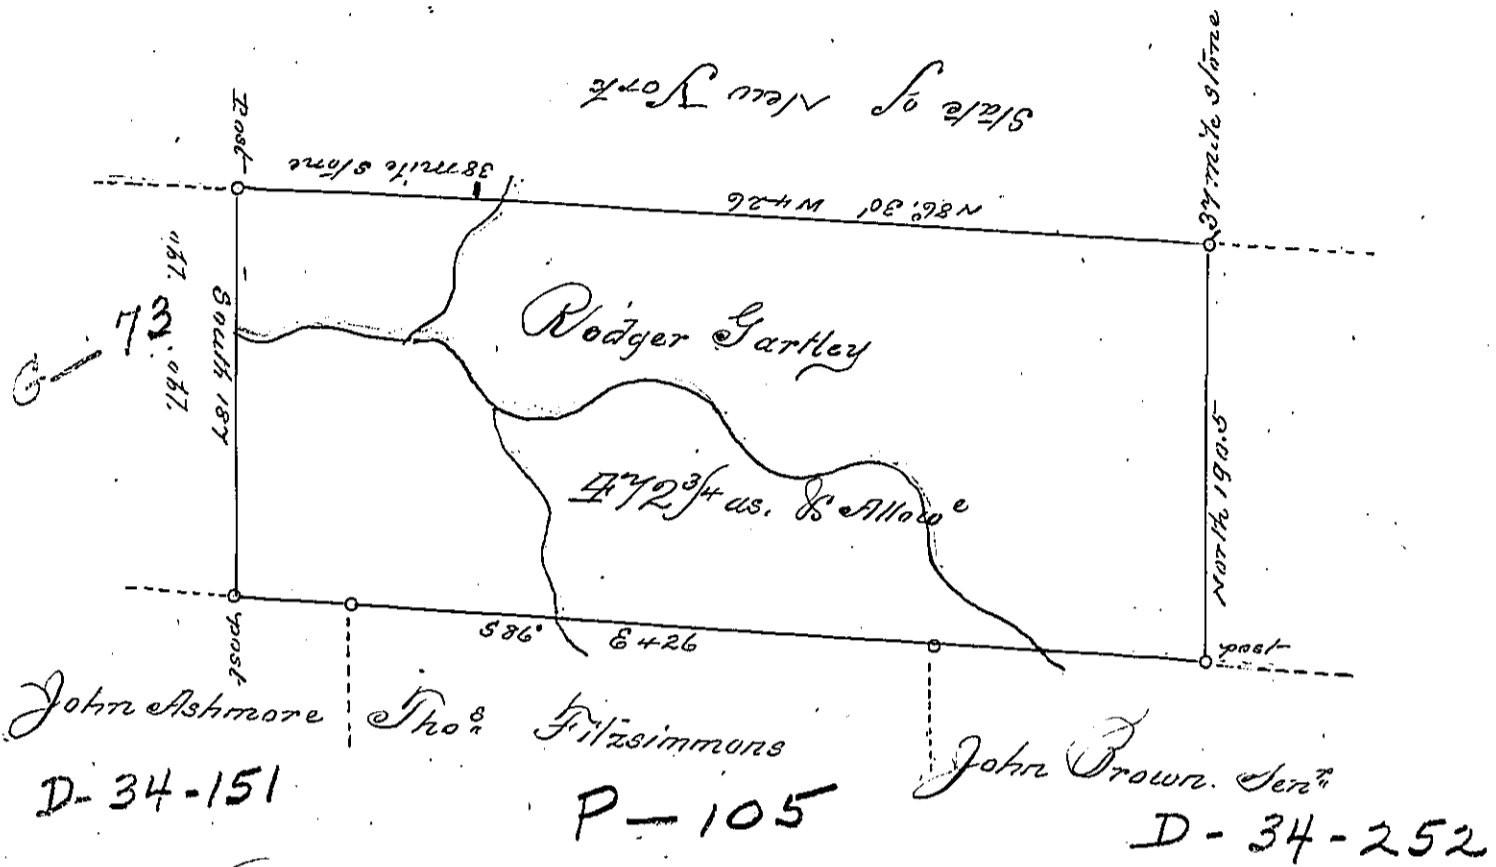 State of New York
Post
38 mile stone
N 86.° 30' W 426
37 mile stone
G — 73
South 187
Rodger Gartley
472 3/4 as. & Allowe
North 190.5
post
S 86° E 426
post
John Ashmore
Thos. Fitzsimmons
John Brown. Senr
D-34-151
P-105
D-34-252